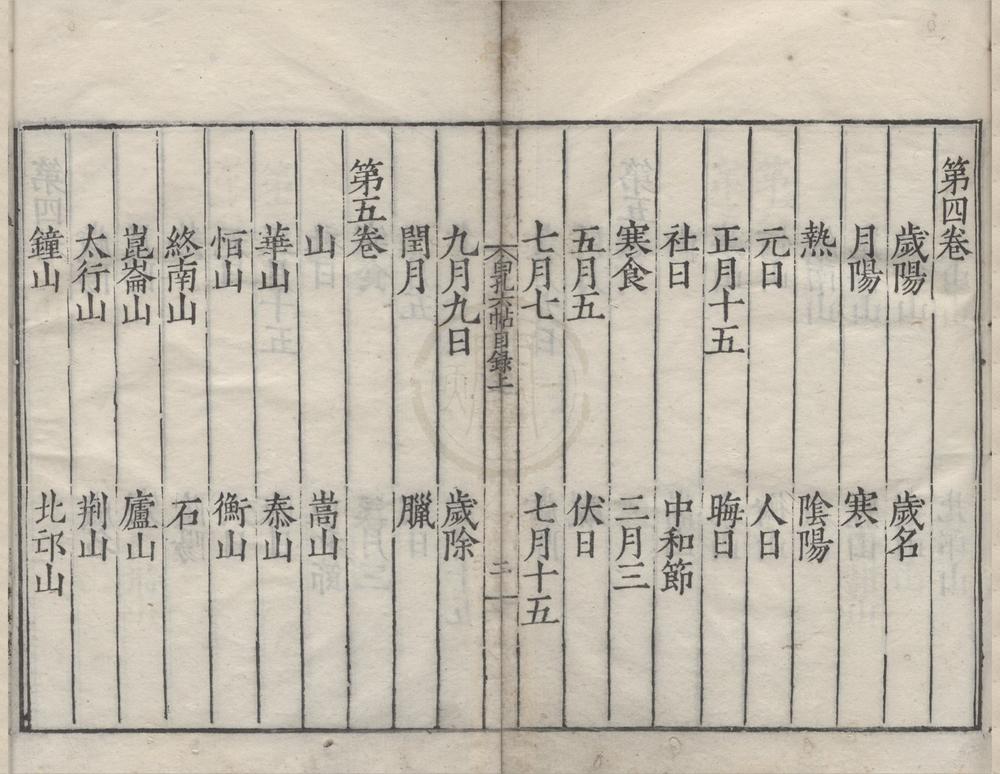 第四卷
歲陽 歲名
月陽 寒
熱 陰陽
元日 人日
正月十五 晦日
社日 中和節
寒食 三月三
五月五 伏日
七月七 七月十五
六帖目錄上 二
九月九日 歲除
閏月 臘
第五卷
山 嵩山
華山 泰山
恒山 衡山
終南山 石
崑崙山 廬山
太行山 荆山
鐘山 北邙山